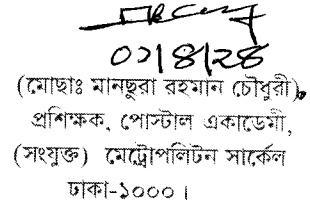 ০১/৪/২৪
(মোছাঃ মানছুরা রহমান চৌধুরী)
প্রশিক্ষক, পোস্টাল একাডেমী,
(সংযুক্ত) মেট্রোপলিটন সার্কেল
ঢাকা-১০০০।